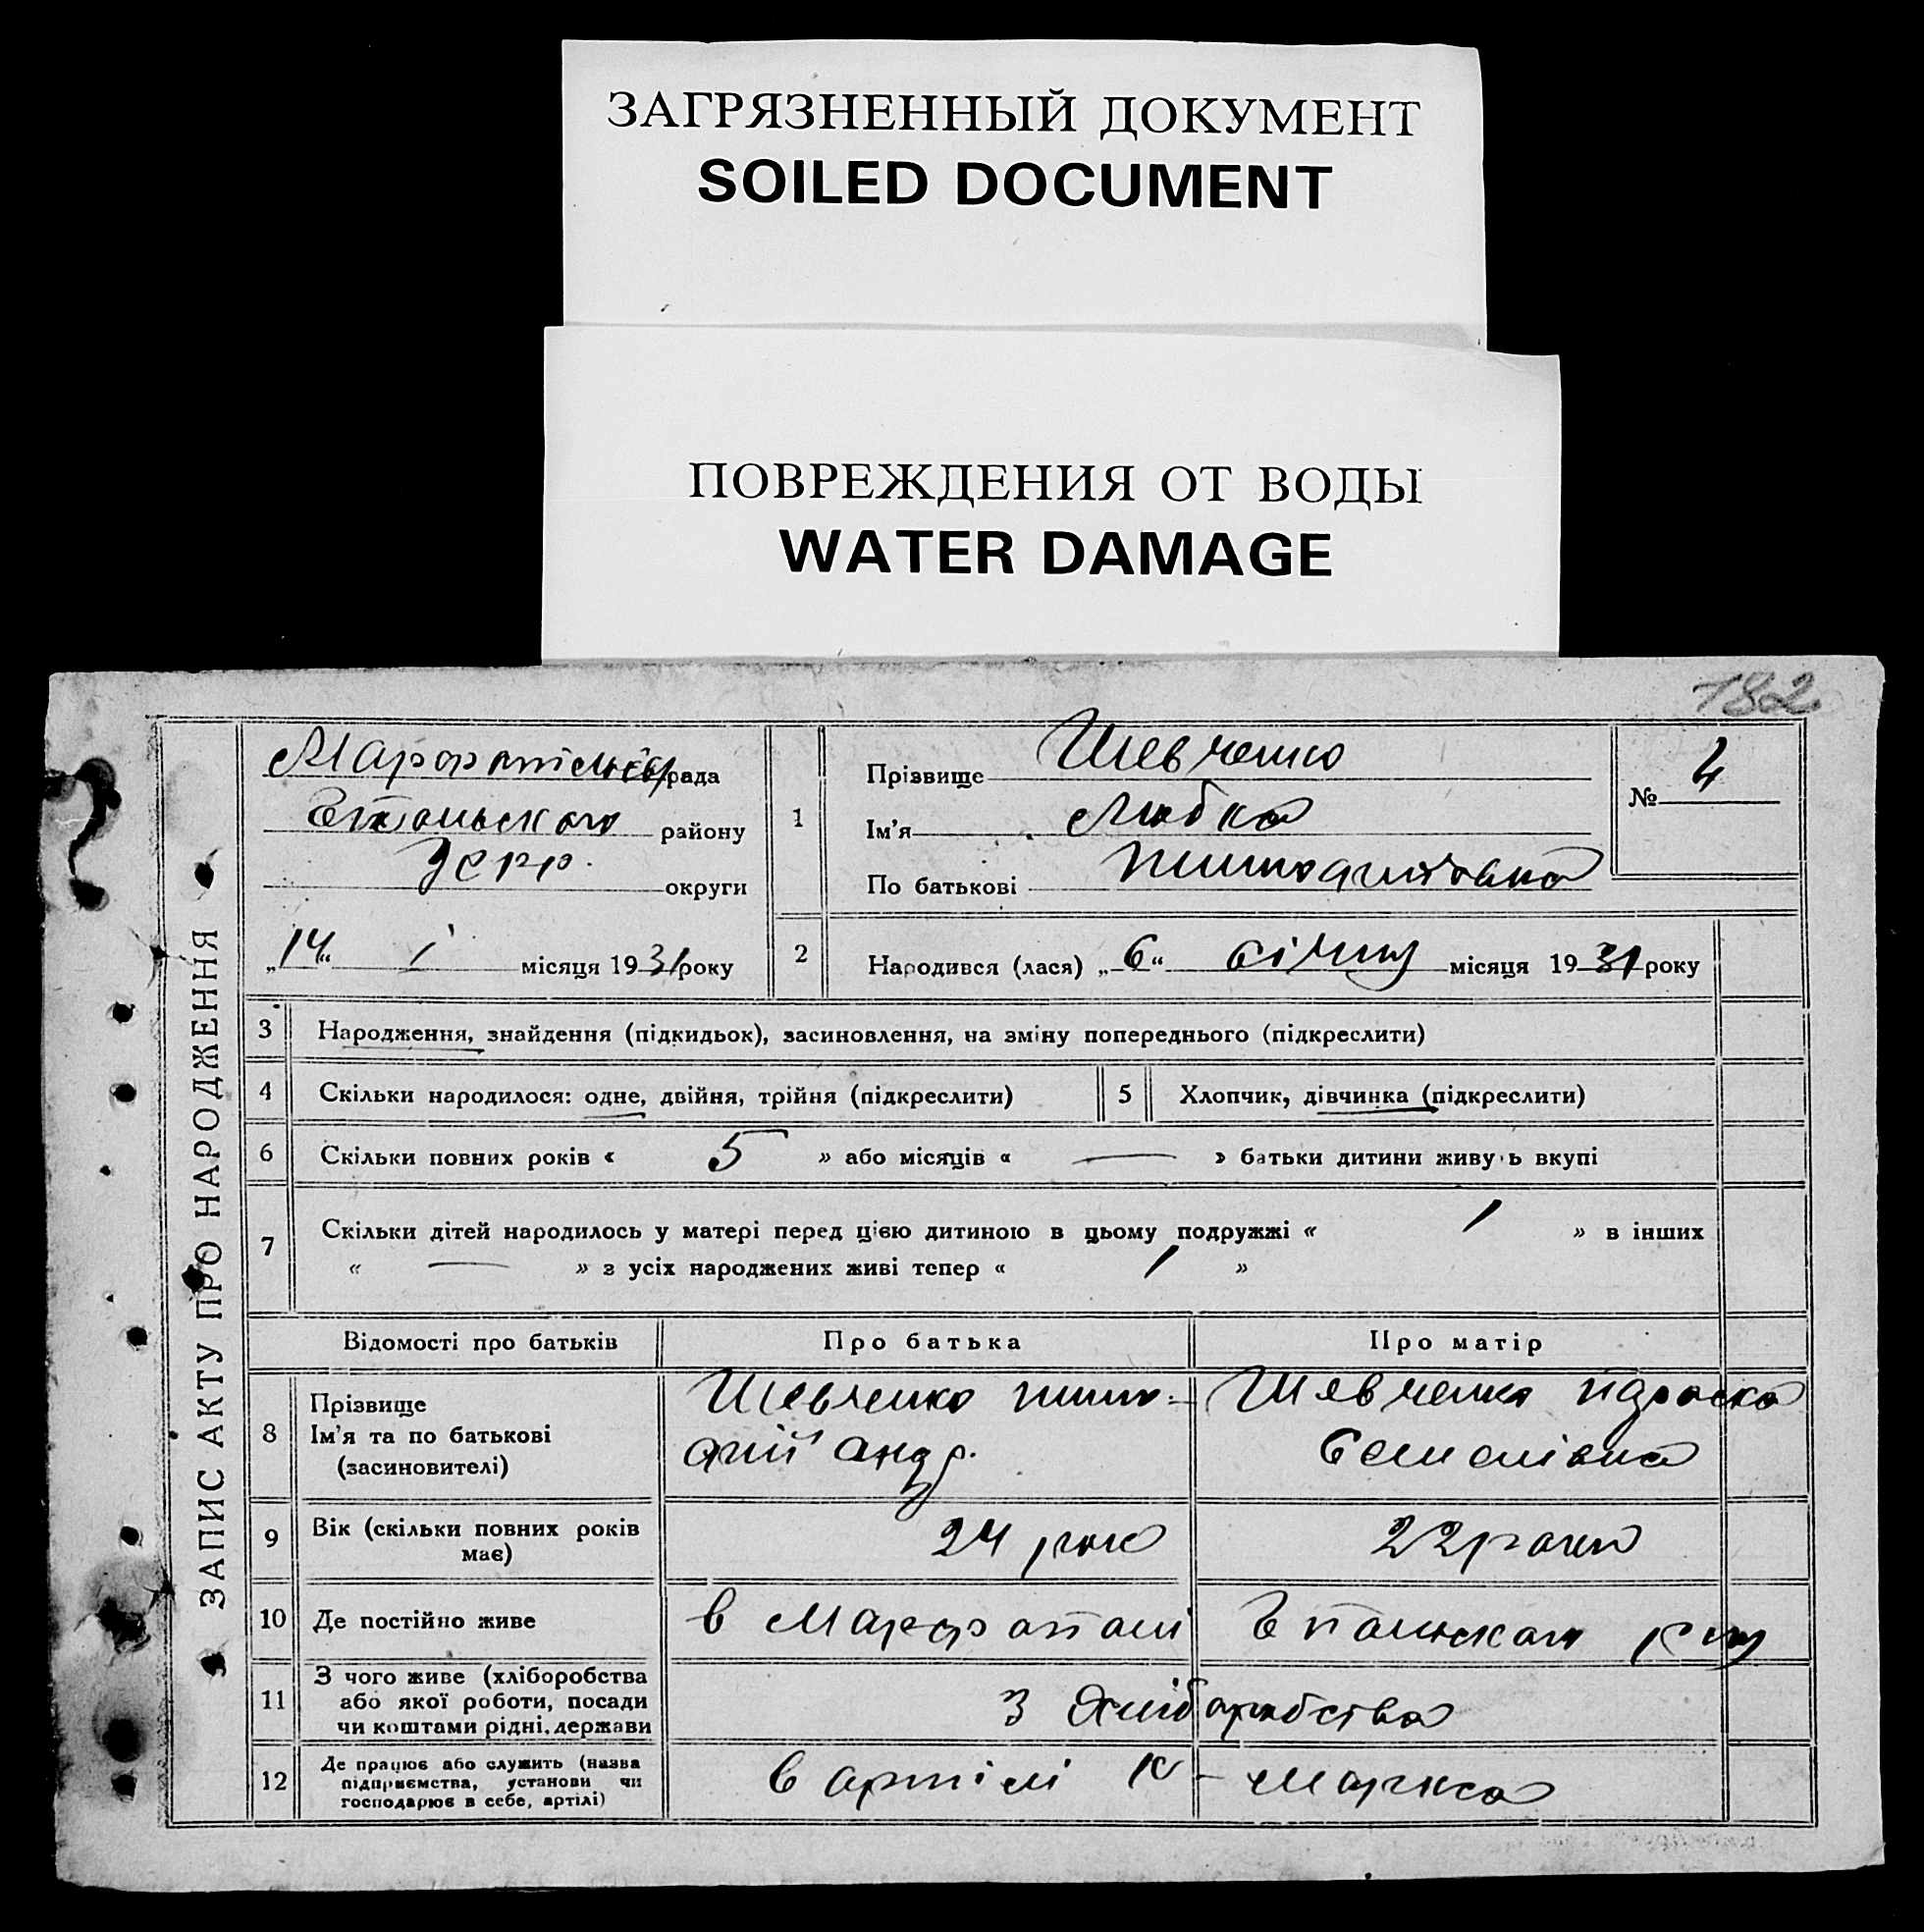 ЗАГРЯЗНЕННЫЙ ДОКУМЕНТ
SOILED DOCUMENT
ПОВРЕЖДЕНИЯ ОТ ВОДЫ
WATER DAMAGE
182
ЗАПИС АКТУ ПРО НАРОДЖЕННЯ
рада
району
округи
„14“ і місяця 1931 року
1
Прізвище Шевченко
Ім'я Любка
По батькові
№ 4
2
Народився (лася) „6“ січня місяця 1931 року
3 Народження, знайдення (підкидьок), засиновлення, на зміну попереднього (підкреслити)
4 Скільки народилося: одне, двійня, трійня (підкреслити) 5 Хлопчик, дівчинка (підкреслити)
6 Скільки повних років « 5 » або місяців « — » батьки дитини живуть вкупі
7 Скільки дітей народилось у матері перед цією дитиною в цьому подружжі « 1 » в інших
« — » з усіх народжених живі тепер « 1 »
Відомості про батьків Про батька Про матір
8 Прізвище
Ім'я та по батькові
(засиновителі)
Шевченко тимо-
фий андр.
Шевченко
9 Вік (скільки повних років
має)
24 рок
22 роки
10 Де постійно живе в
11 З чого живе (хліборобства
або якої роботи, посади
чи коштами рідні, держави
З хліборобства
12 Де працює або служить (назва
підприємства, установи чи
господарює в себе, артілі)
в артілі К-Маркса